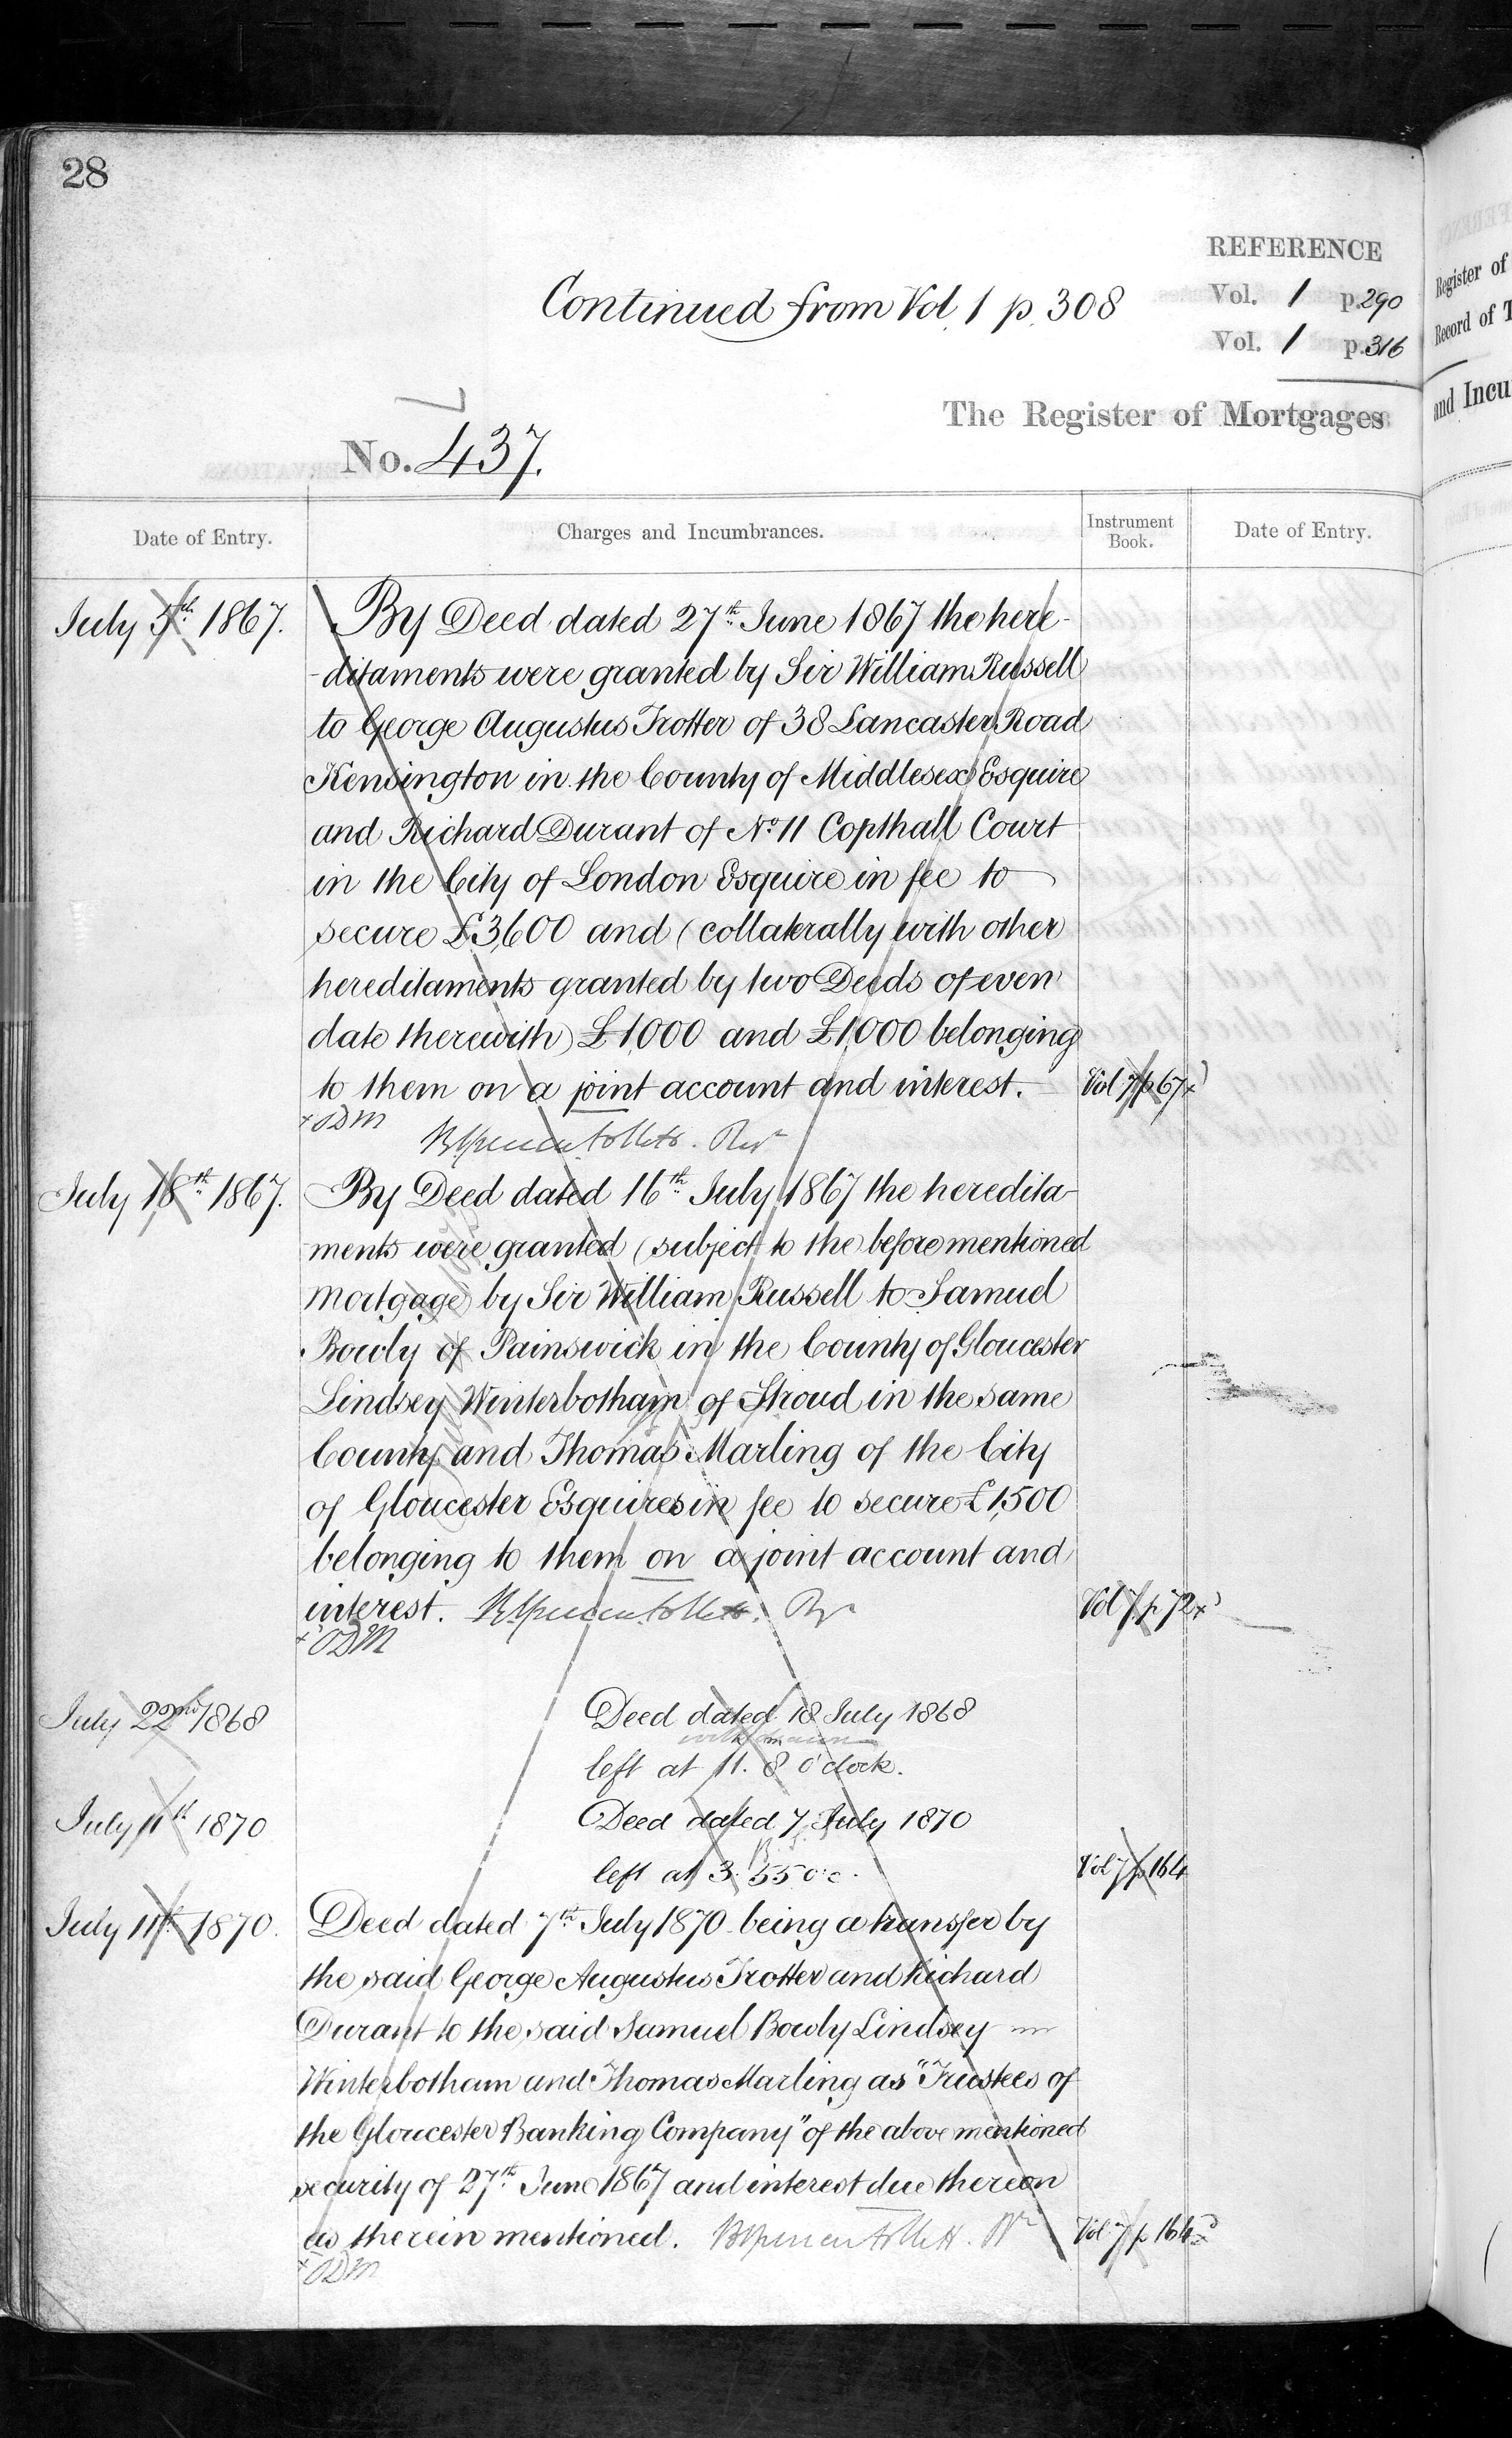 28
REFERENCE
Continued from Vol 1 p. 308
Vol. 1 p. 290
Vol. 1 p. 316
The Register of Mortgages
No. 437.
Date of Entry. Charges and Incumbrances. Instrument Book. Date of Entry.
July 5th 1867. By Deed dated 27th June 1867 the here-
-ditaments were granted by Sir William Russell
to George Augustus Trotter of 38 Lancaster Road
Kensington in the County of Middlesex Esquire
and Richard Durant of No 11 Copthall Court
in the City of London Esquire in fee to
secure £3,600 and (collaterally with other
hereditaments granted by two Deeds of even
date therewith) £1,000 and £1,000 belonging
to them on a joint account and interest. Vol 7 p 67
+ODM
July 18th 1867. By Deed dated 16th July 1867 the heredita-
ments were granted (subject to the before mentioned
mortgage) by Sir William Russell to Samuel
Bowly of Painswick in the County of Gloucester
Lindsey Winterbotham of Stroud in the same
County and Thomas Marling of the City
of Gloucester Esquires in fee to secure £1,500
belonging to them on a joint account and
interest. Vol 7 p 72
+ODM
July 22nd 1868 Deed dated 18 July 1868
withdrawn
left at 11. 8 o'clock.
July 11th 1870 Deed dated 7 July 1870
left at 3. 55 o'c. Vol 7 p 164
July 11th 1870. Deed dated 7th July 1870 being a transfer by
the said George Augustus Trotter and Richard
Durant to the said Samuel Bowly Lindsey
Winterbotham and Thomas Marling as "Trustees of
the Gloucester Banking Company" of the above mentioned
security of 27th June 1867 and interest due thereon
as therein mentioned. Vol 7 p 164
+ODM
Register of
Record of T
and Incu